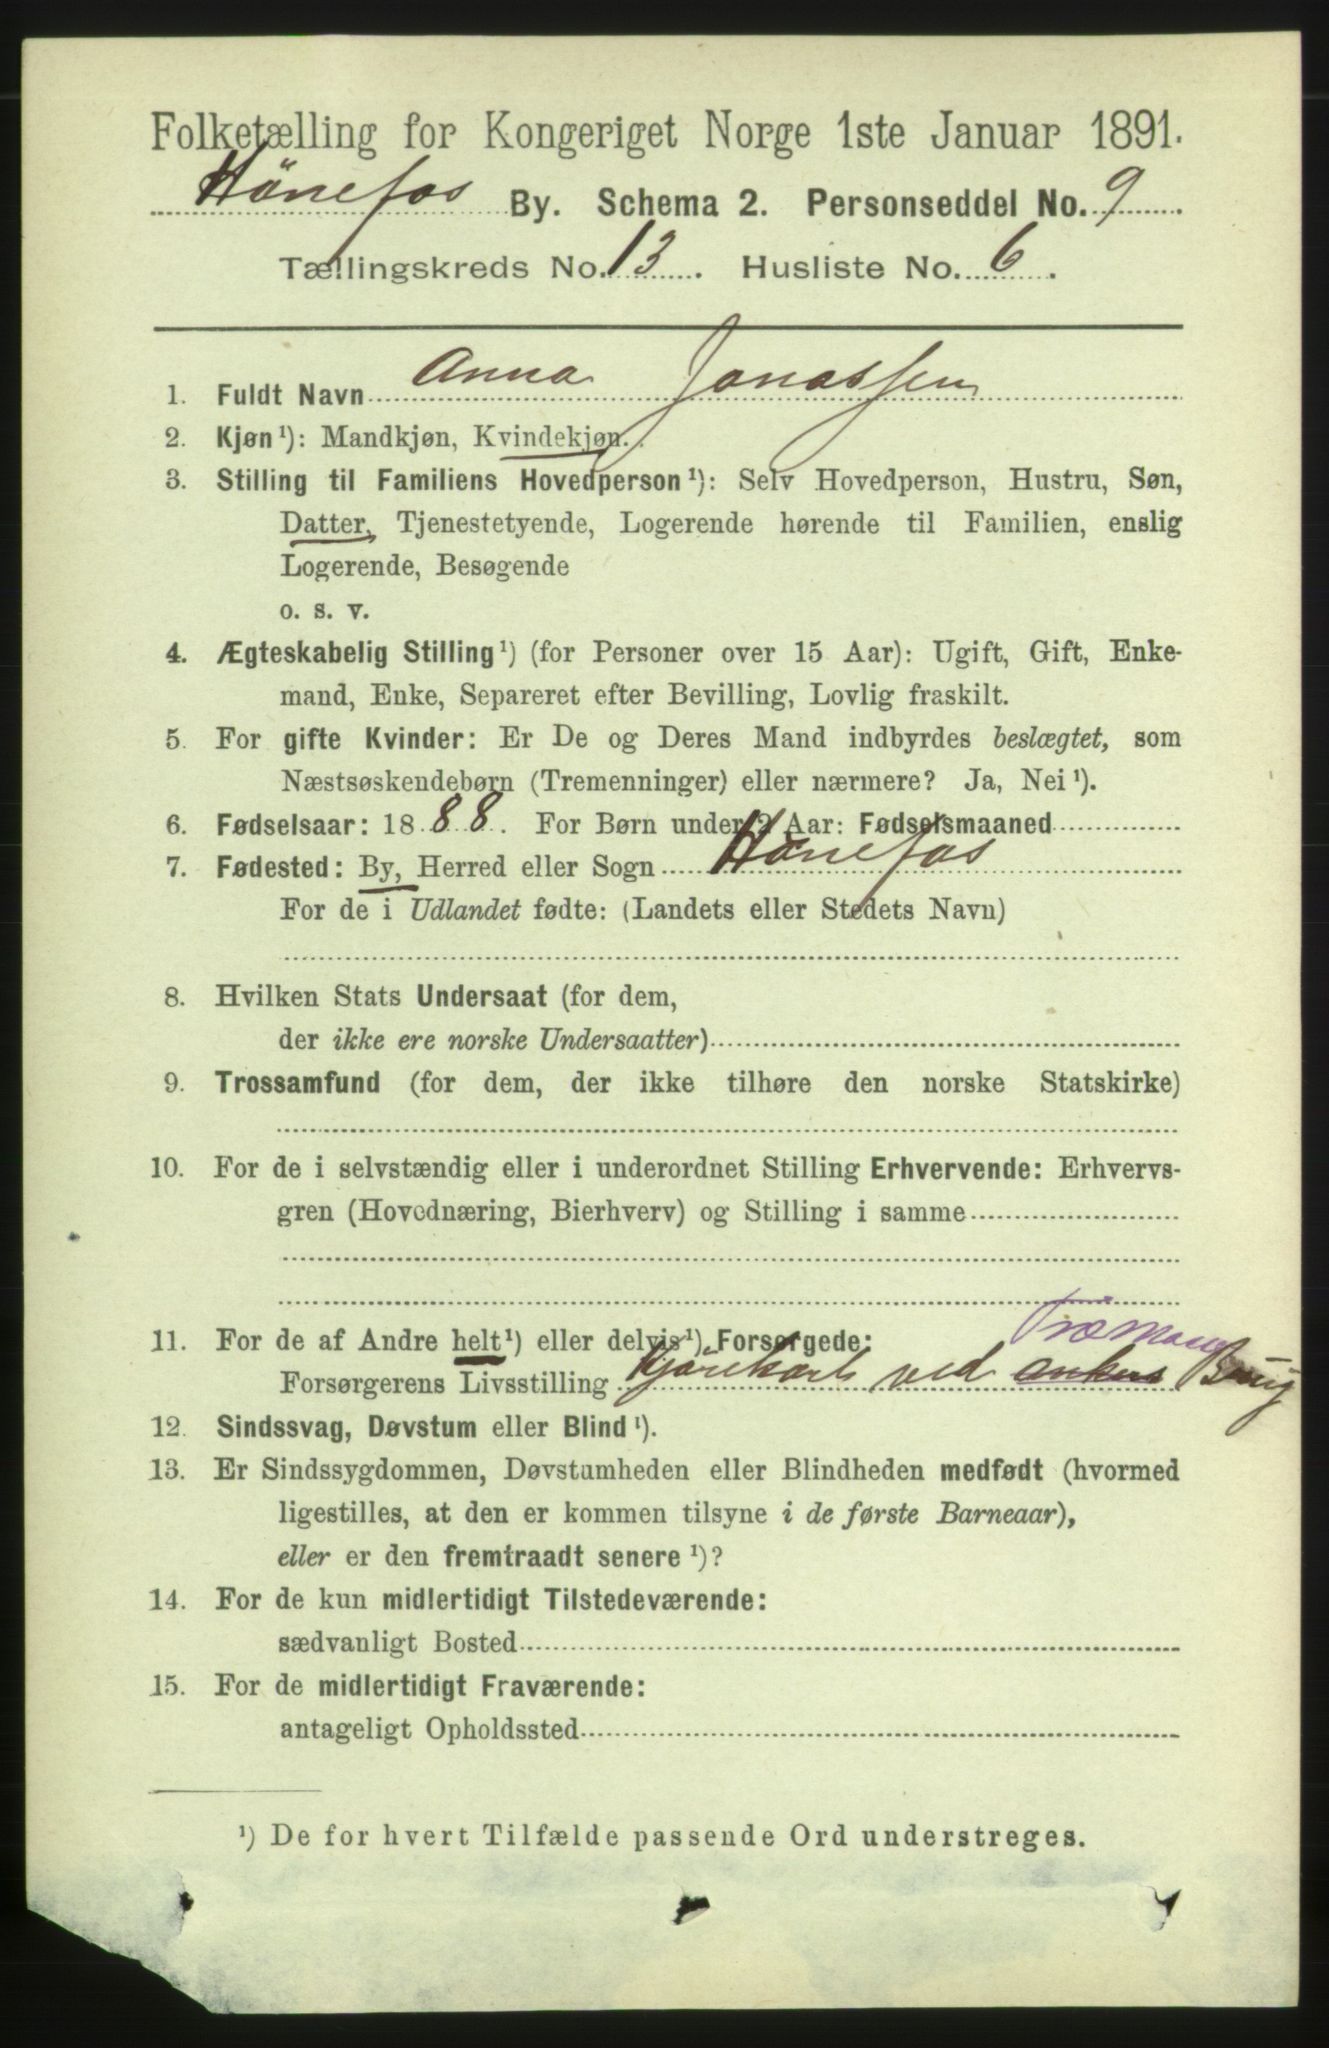 Folketælling for Kongeriget Norge 1ste Januar 1891.
Hönefos By. Schema 2. Personseddel No. 9.
Tællingskreds No. 13. Husliste No. 6.
1. Fuldt Navn Anna Jonassen
2. Kjøn¹): Mandkjøn, Kvindekjøn.
3. Stilling til Familiens Hovedperson¹): Selv Hovedperson, Hustru, Søn,
Datter, Tjenestetyende, Logerende hørende til Familien, enslig
Logerende, Besøgende
o. s. v.
4. Ægteskabelig Stilling¹) (for Personer over 15 Aar): Ugift, Gift, Enke-
mand, Enke, Separeret efter Bevilling, Lovlig fraskilt.
5. For gifte Kvinder: Er De og Deres Mand indbyrdes beslægtet, som
Næstsøskendebørn (Tremenninger) eller nærmere? Ja, Nei¹).
6. Fødselsaar: 1888. For Børn under 2 Aar: Fødselsmaaned
7. Fødested: By, Herred eller Sogn Hönefos
For de i Udlandet fødte: (Landets eller Stedets Navn)
8. Hvilken Stats Undersaat (for dem,
der ikke ere norske Undersaatter)
9. Trossamfund (for dem, der ikke tilhøre den norske Statskirke)
10. For de i selvstændig eller i underordnet Stilling Erhvervende: Erhvervs-
gren (Hovednæring, Bierhverv) og Stilling i samme
11. For de af Andre helt¹) eller delvis¹) Forsørgede:
Forsørgerens Livsstilling Kjörekarl ved Brug
12. Sindssvag, Døvstum eller Blind¹).
13. Er Sindssygdommen, Døvstumheden eller Blindheden medfødt (hvormed
ligestilles, at den er kommen tilsyne i de første Barneaar),
eller er den fremtraadt senere¹)?
14. For de kun midlertidigt Tilstedeværende:
sædvanligt Bosted
15. For de midlertidigt Fraværende:
antageligt Opholdssted
¹) De for hvert Tilfælde passende Ord understreges.